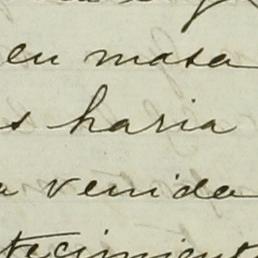 en masa
s haria
a venida
tecimient